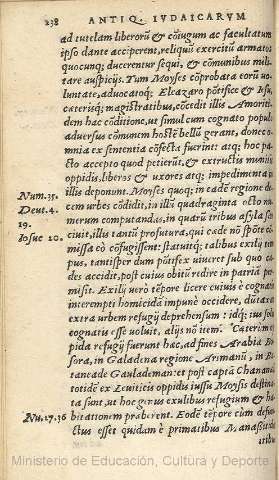 238 ANTIQ. IVDAICARVM
ad tutelam liberorũ & cõiugum ac facultatum
ipso dante acciperent, reliquũ exercitũ armatos
quocunq; ducerentur sequi, & cõmunibus mili-
tare auspicijs. Tum Moyses cõprobata eorũ uo-
luntate, aduocatoq; Eleazaro põtifice & Iesu,
caterisq; magistratibus, cõcedit illis Amoriti-
dem hac cõditione, ut simul cum cognato populo
aduersus cõmunem hostẽ bellũ gerant, donec o-
mnia ex sententia cõfecta fuerint: atq; hoc pa-
cto accepto quod petierũt, & extructis munitis
oppidis, liberos & uxores atq; impedimenta in
illis deponunt. Moyses quoq; in eadẽ regione de-
Num. 35. cem urbes cõdidit, in illũ quadraginta octo nu-
Deut. 4. merum computandas, in quarũ tribus asyla sã-
19. ciuit, illis tantũ profutura, qui cæde nõ spõte cõ-
Iosue 20. missa eò cõfugissent: statuitq; talibus exilij tem-
pus, tantisper dum põtifex uiueret sub quo cæ-
des accidit, post cuius obitũ redire in patriã per-
misit. Exilij uerò tẽpore licere cuiuis è cognatis
interempti homicidam impunè occidere, dutaxat
extra urbem refugij deprehensum: idq; ius solis
cognatis esse uoluit, alijs nõ item. Cæterum op-
pida refugij fuerunt hæc, ad fines Arabiæ Bo-
sora, in Galadena regione Arimanũ, in Ba-
taneade Gaulademan: et post captã Chananæã
totidẽ ex Leuiticis oppidis iussu Moysis destina-
ta sunt, ut hoc genus exulibus refugium & ha-
Nu. 27. 36 bitationem præberent. Eodẽ tẽpore cùm defun-
ctus esset quidam è primatibus Manassitidis
tribu
Ministerio de Educación, Cultura y Deporte